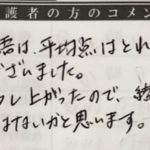 護者の方のコメン
語は、平均点はとれ
ございました。
少し上がったので、
はないかと思います。